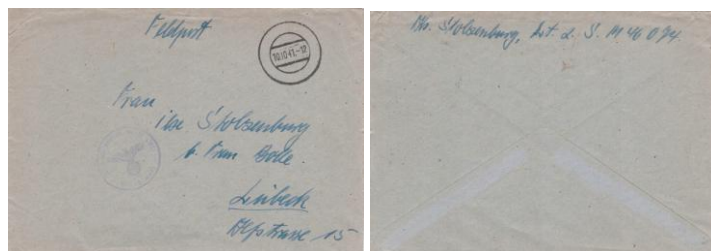 Feldpost
10.10.41.-12
Frau
Ilse Stolzenburg
b. Frau Bolle.
Lübeck
15
Stolzenburg, Lt. d. S. M 46 094.